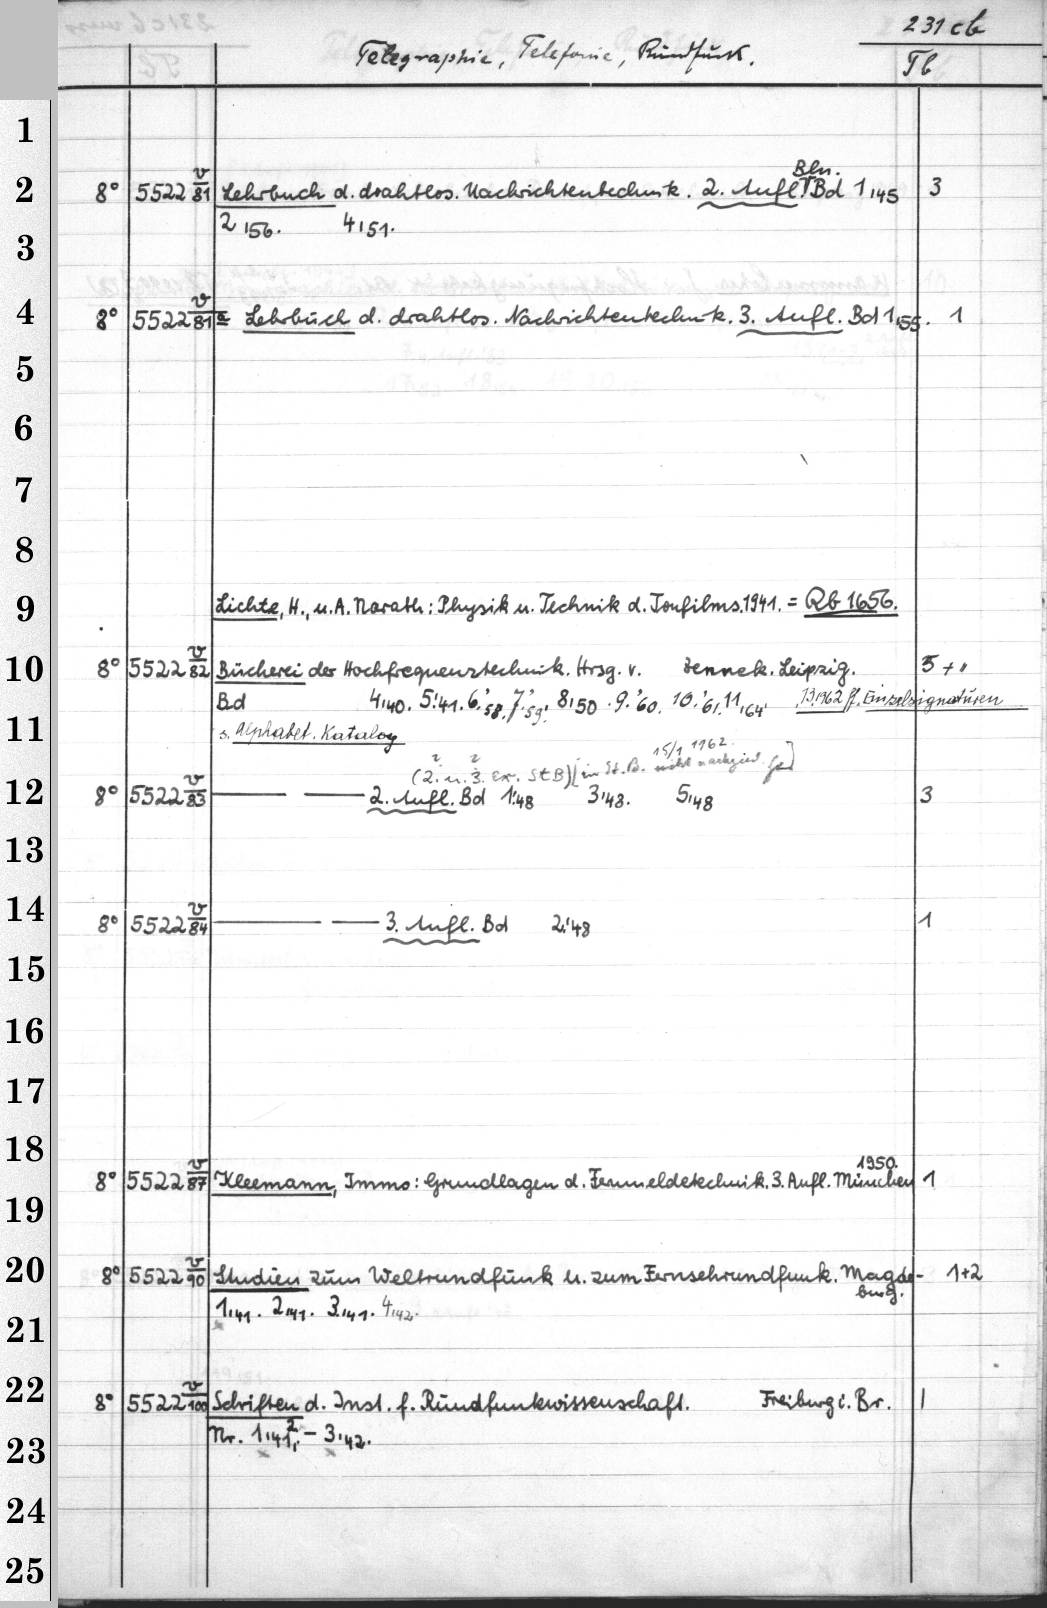 231 cb
Telegraphie, Telefonie, Rundfunk.
Tb
1
Bln.
2 8° 5522 v/81 Lehrbuch d. drahtlos. Nachrichtentechnik. 2. Aufl. Bd 1,45 3
2,56. 4,51.
3
4 8° 5522 v/81a Lehrbuch d. drahtlos. Nachrichtentechnik. 3. Aufl. Bd 1,55. 1
5
6
7
8
9 Lichte, H., u. A. Narath: Physik u. Technik d. Tonfilms. 1941. = Rb 1656.
10 8° 5522 v/82 Bücherei der Hochfrequenztechnik. Hrsg. v. Zenneck. Leipzig. 5 + "
Bd 4,40. 5,'41. 6,'58. 7,'59. 8,50. 9,'60. 10,'61. 11,'64 1962 ff. Einzelsignaturen
11 s. Alphabet. Katalog
(2. u. 3. Ex. StB) [in St.B. 15/1 1962 nicht
12 8° 5522 v/83 — — 2. Aufl. Bd 1,'48 3,'48. 5,'48 3
13
14 8° 5522 v/84 — — 3. Aufl. Bd 2,'48 1
15
16
17
18
1950.
8° 5522 v/87 Kleemann, Immo: Grundlagen d. Fernmeldetechnik. 3. Aufl. München 1
19
20 8° 5522 v/90 Studien zum Weltrundfunk u. zum Fernsehrundfunk. Magde- 1+2
burg.
1,41. 2,41. 3,41. 4,42.
21
22 8° 5522 v/100 Schriften d. Inst. f. Rundfunkwissenschaft. Freiburg i. Br. 1
23 Nr. 1,41,2 – 3,42.
24
25